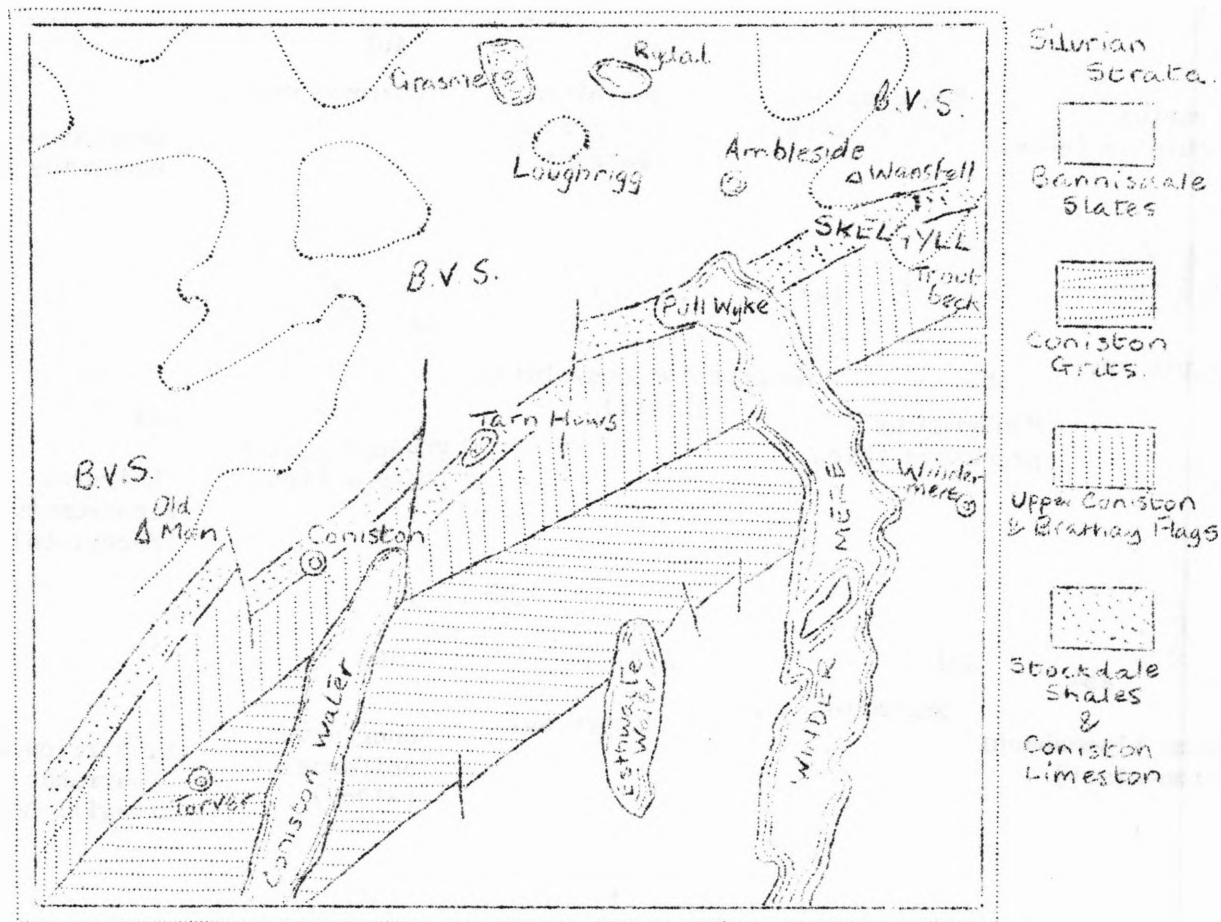 Grasmere
Rydal
B.V.S.
Loughrigg
Ambleside
Wansfell
SKELGYLL
Trout
beck
B.V.S.
Pull Wyke
Tarn Hows
B.V.S.
Old
Man
Coniston
Winder
mere
Coniston Water
Esthwaite
Water
WINDER MERE
Torver
Silurian
Strata.
Bannisdale
Slates
Coniston
Grits.
Upper Coniston
& Brathay Flags
Stockdale
Shales
&
Coniston
Limeston